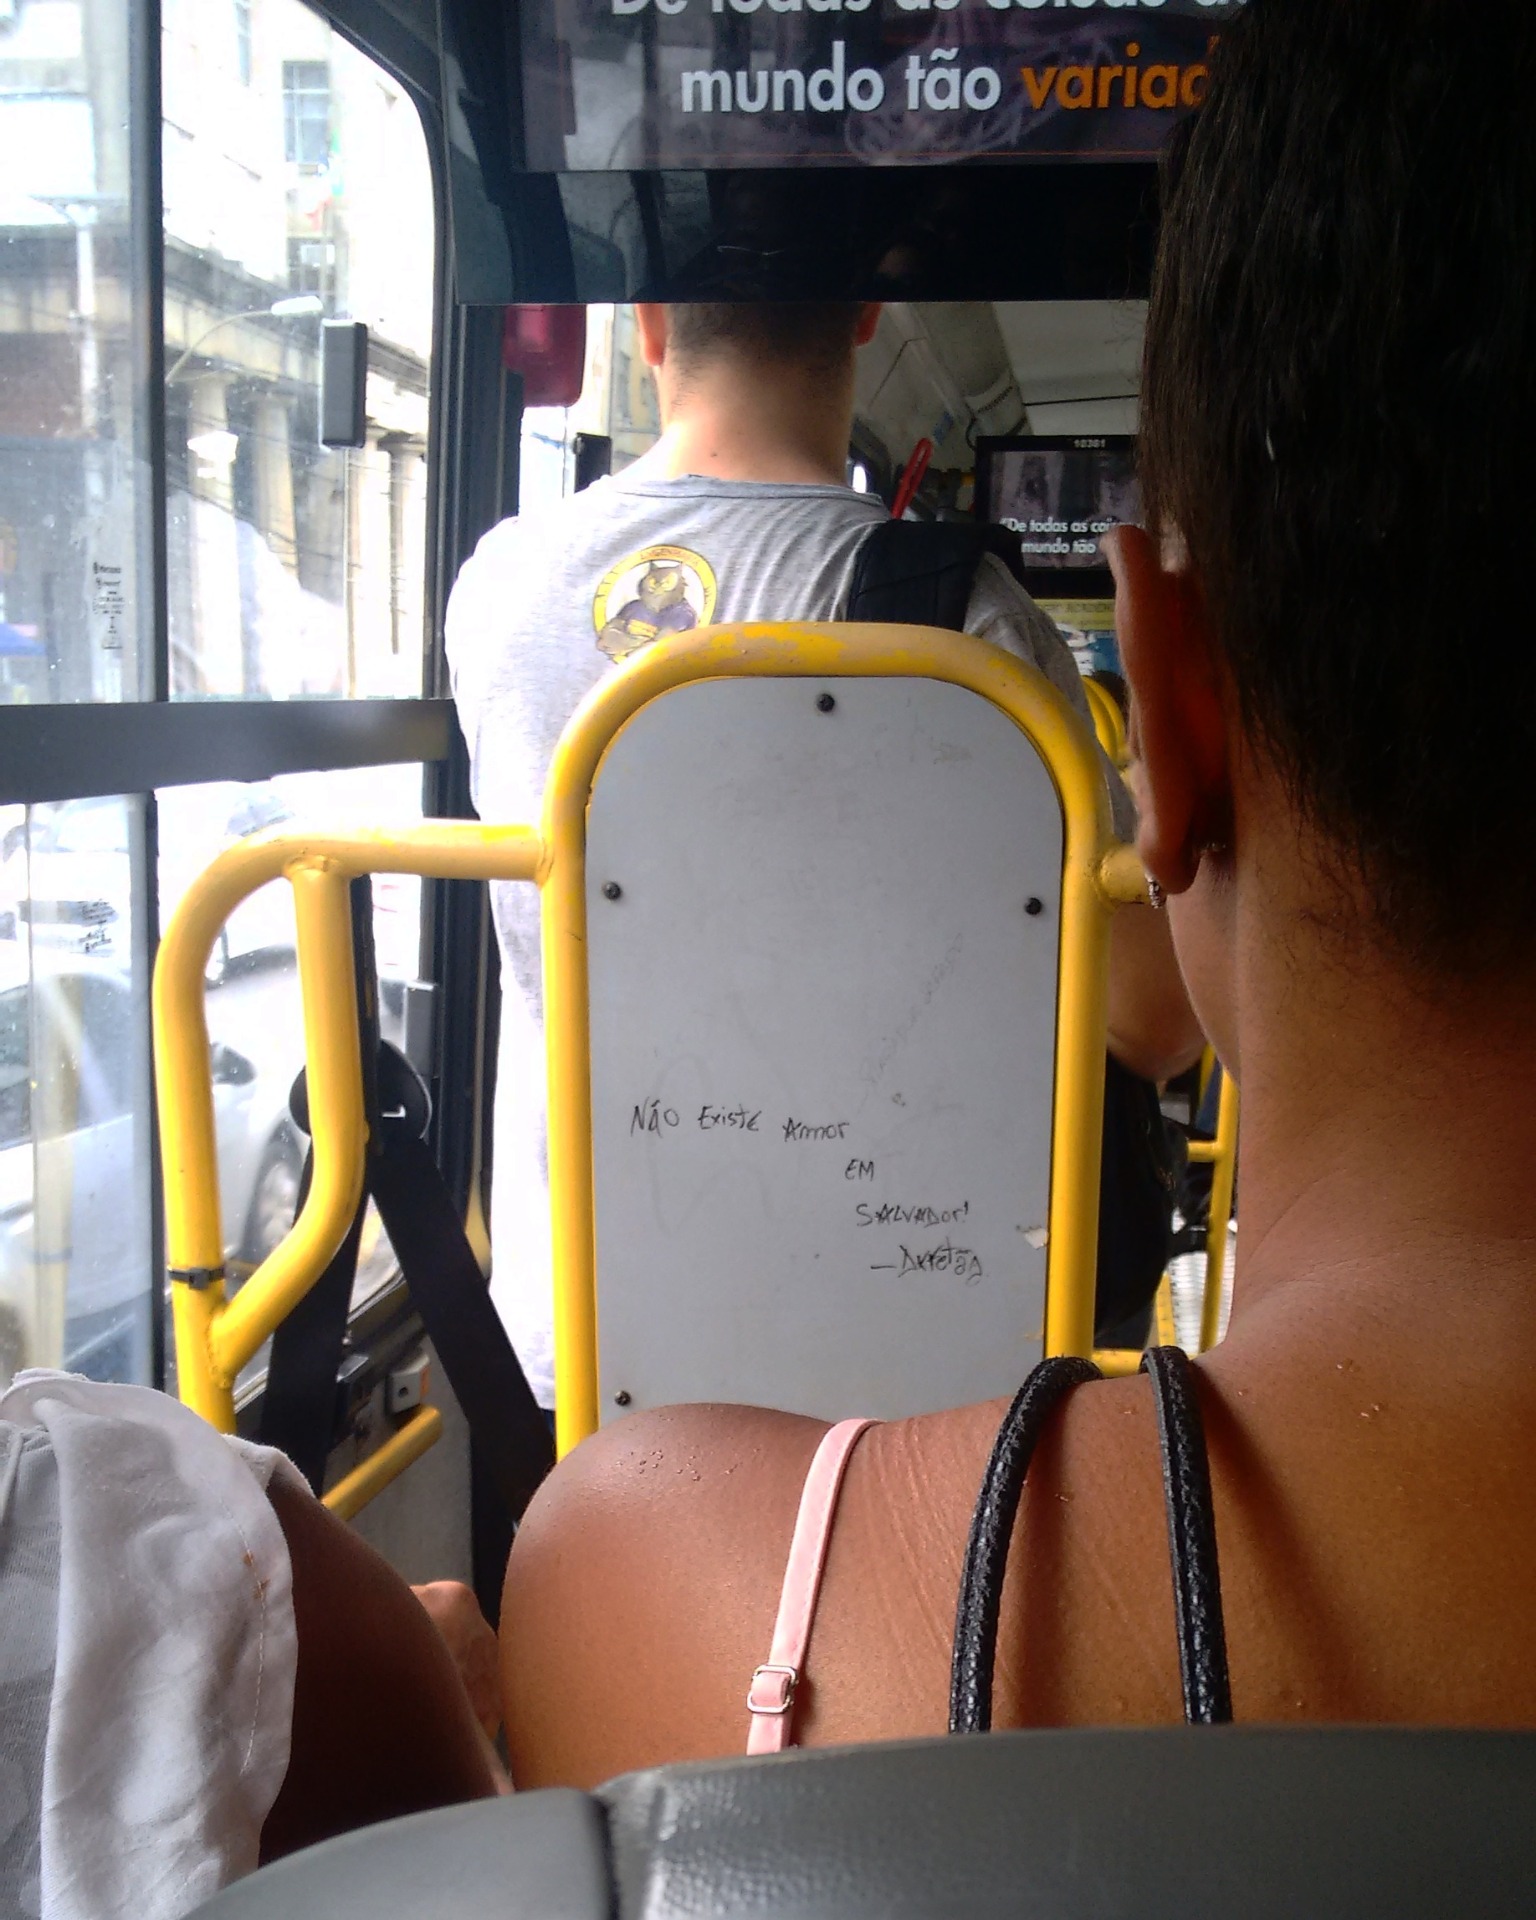 De todas as coisas d
mundo tão variad
10361
"De todas as coi
mundo tão
NÃO EXISTE AMOR
EM
SALVADOR!